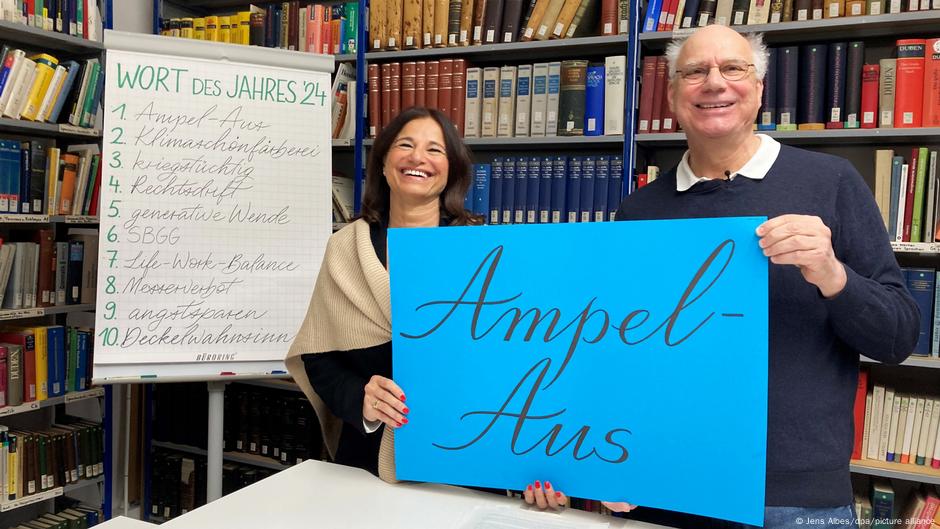 WORT DES JAHRES '24
1. Ampel-Aus
2. Klimaschönfärberei
3. kriegstüchtig
4. Rechtsdrift
5. generative Wende
6. SBGG
7. Life-Work-Balance
8. Messerverbot
9. angstsparen
10. Deckelwahnsinn
BÜRORING
Ampel-
Aus
DUDEN
DUDEN
© Jens Albes/dpa/picture alliance